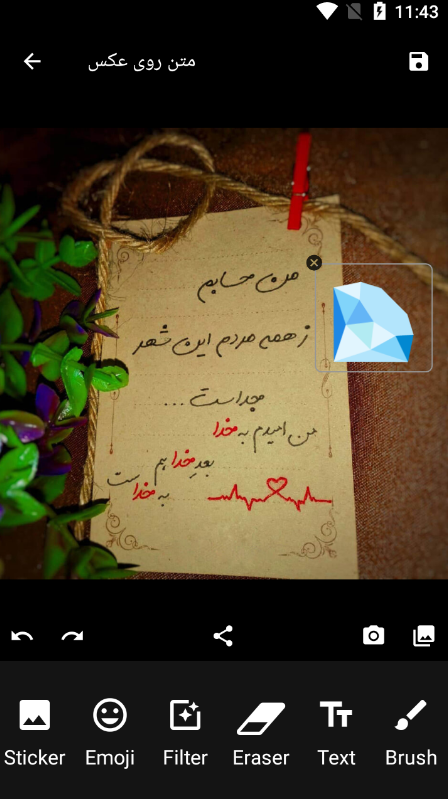 11:43
متن روی عکس
من حسابم
ز همه مردم این شهر
جداست ...
من امیدم به خدا
بعدِ خدا هم
به خدا ست
Sticker Emoji Filter Eraser Text Brush